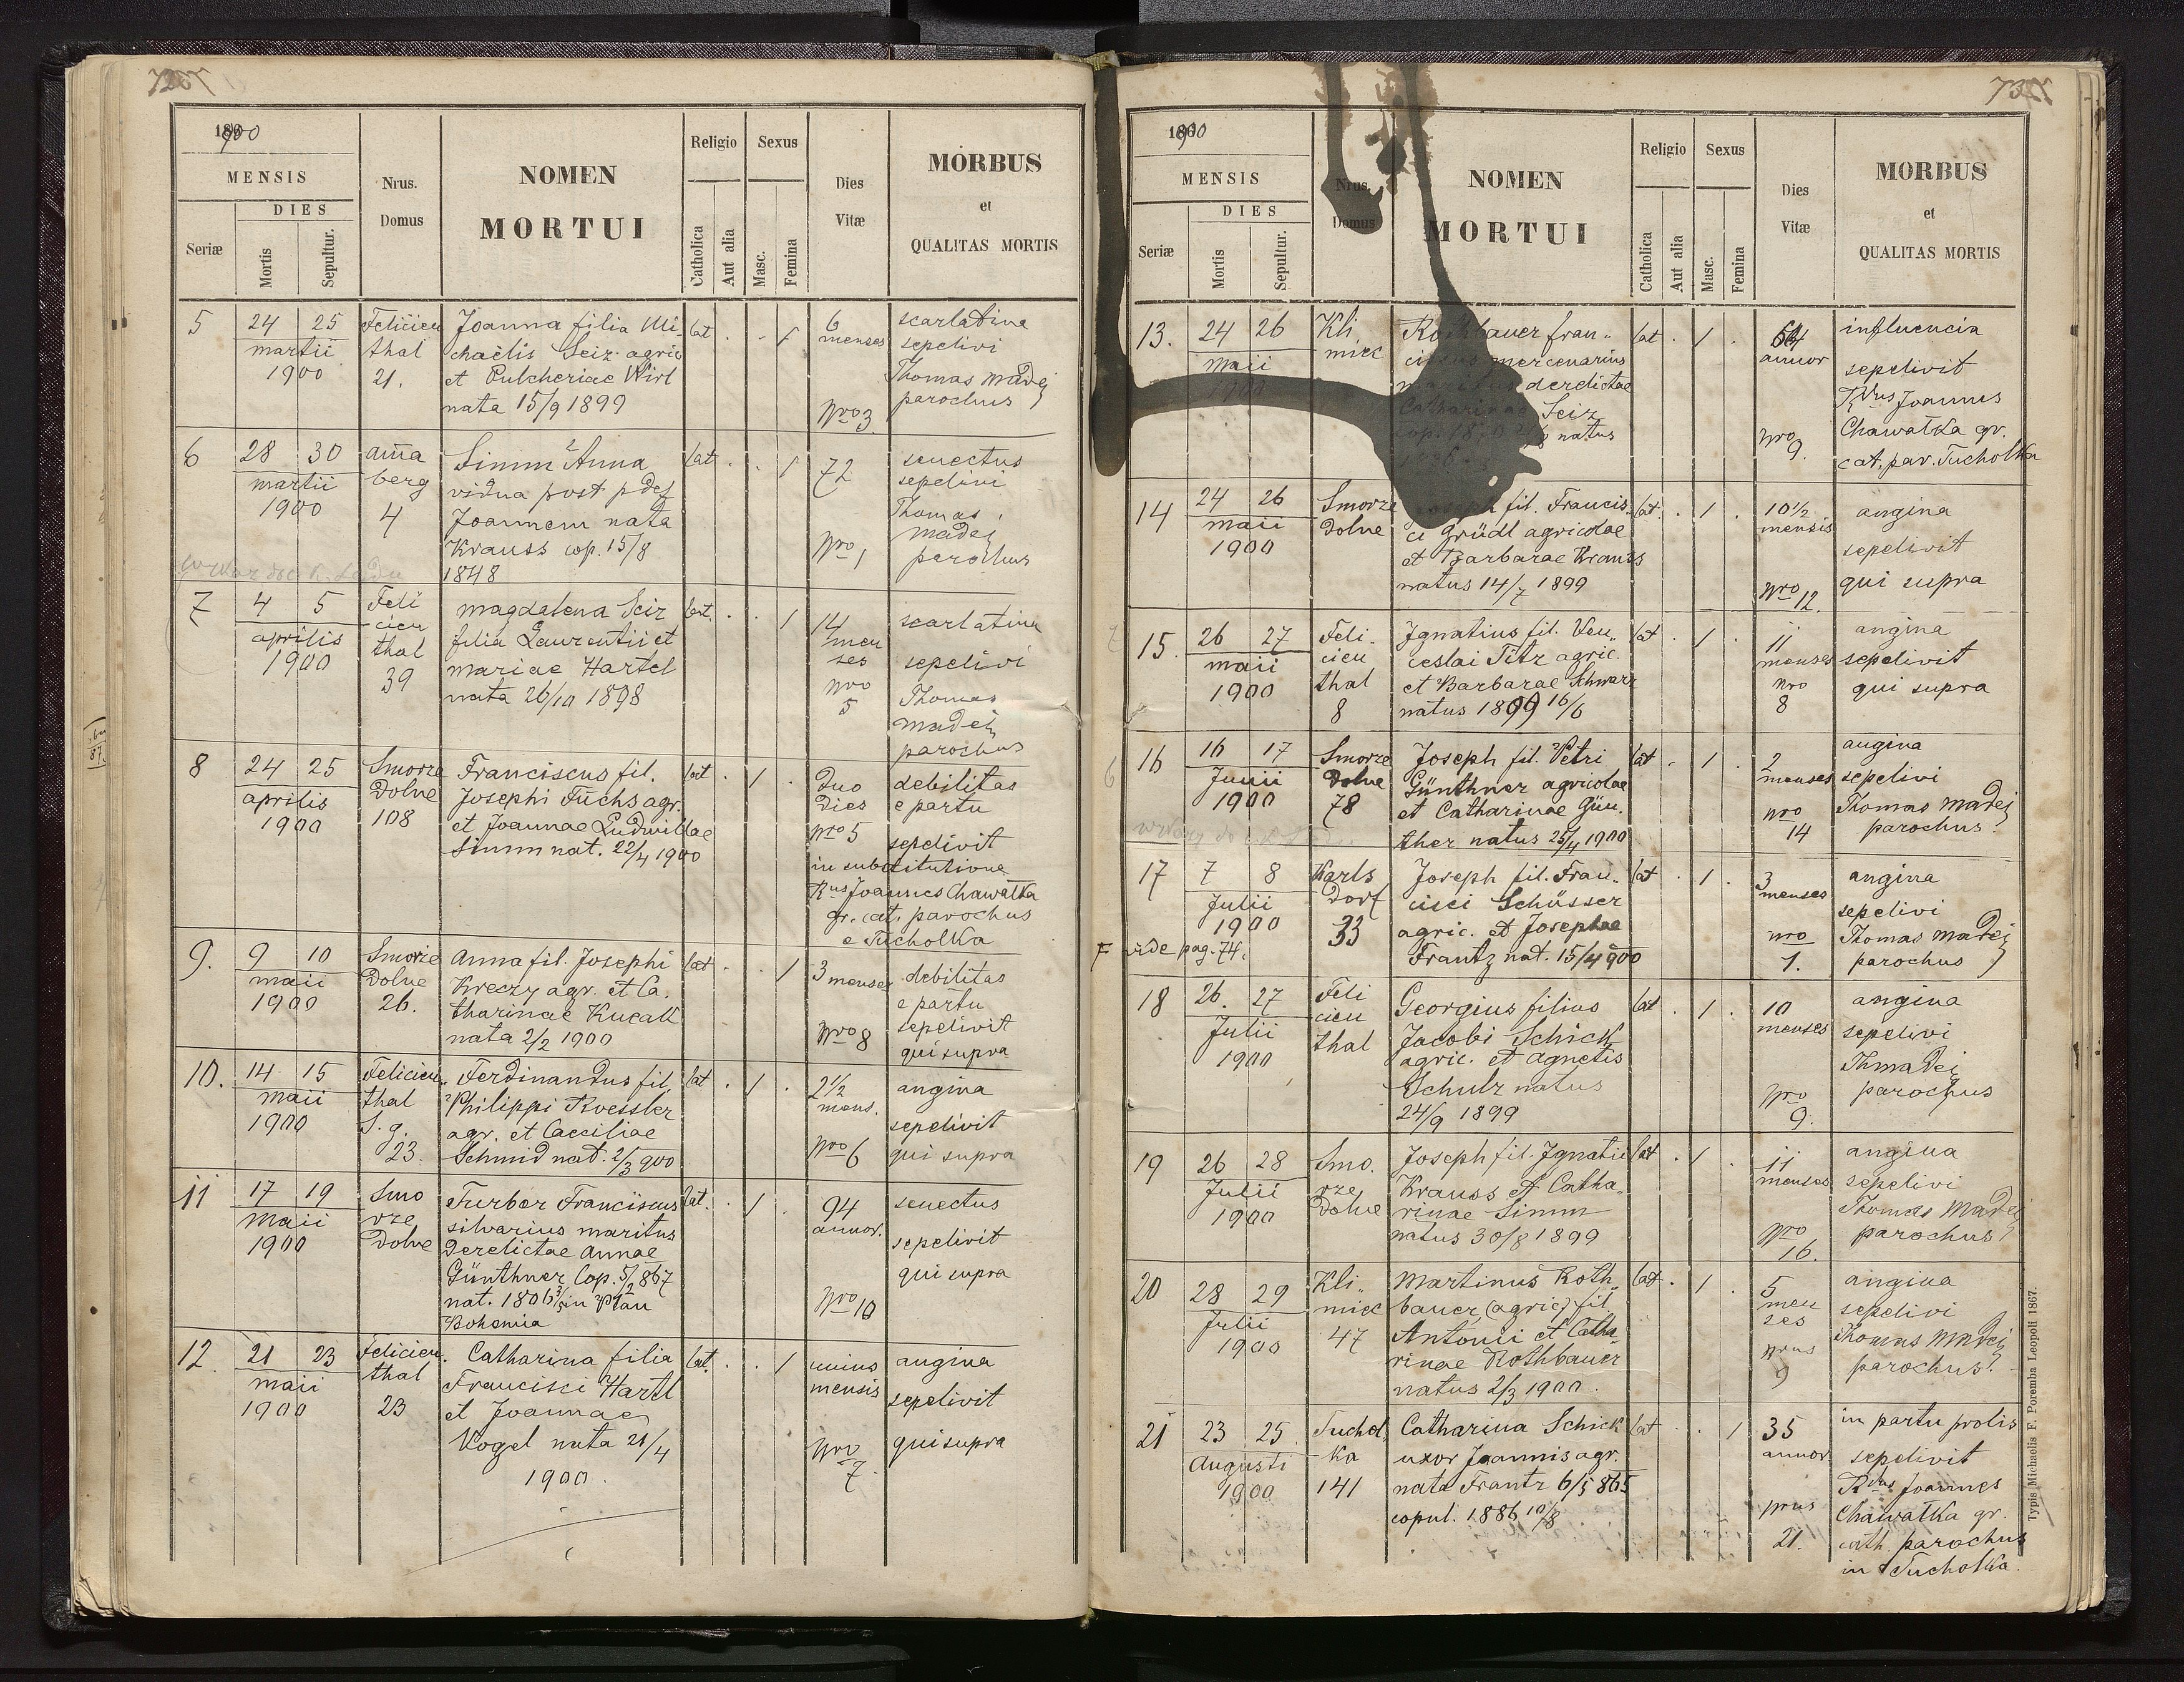 1900
MENSIS
DIES
Seriæ
Mortis
Sepultur.
Nrus.
Domus
NOMEN
MORTUI
Religio
Catholica
Aut alia
Sexus
Masc.
Femina
Dies
Vitæ
MORBUS
et
QUALITAS MORTIS
5
24 25
martii
1900
Felicien
thal
21.
Joanna filia Mi-
chaëlis Seiz agric
et Pulcheriae Wirl
nata 15/9 1899
lat . . 1
6
menses
Nro 3
scarlatina
sepelivi
Thomas Madej
parochus
6
28 30
martii
1900
Anna
berg
4
Simm Anna
vidua post p def
Joannem nata
Krauss cop. 15/8
1848
lat . . 1
72
Nro 1
senectus
sepelivi
Thomas
Madej
parochus
7
4 5
aprilis
1900
Feli
cien
thal
39
Magdalena Seiz
filia Laurentii et
Mariae Hartel
nata 26/10 1898
lat. . . 1
14
men
ses
Nro
5
scarlatina
sepelivi
Thomas
Madej
parochus
8
24 25
aprilis
1900
Smorze
Dolne
108
Franciscus fil.
Josephi Fuchs agr.
et Joannae Ludmillae
Simm nat. 22/4 1900
lat . 1 .
Duo
Dies
Nro 5
debilitas
e partu
sepelivit
in substitutione
Rus Joannes Chawatka
gr. cat. parochus
e Tucholka
9.
9 10
maii
1900
Smorze
Dolne
26.
Anna fil. Josephi
Kreczy agr. et Ca.
tharinae Kucall
nata 2/2 1900
lat . . 1
3 menses
Nro 8
debilitas
e partu
sepelivit
qui supra
10.
14 15
maii
1900
Felicien
thal
S. g.
23.
Ferdinandus fil
Philippi Roessler
agr. et Caeciliae
Schmid nat. 2/3 900
lat . 1 .
2 1/2
mens.
Nro 6
angina
sepelivit
qui supra
11
17 19
Maii
1900
Smo
rze
Dolne
Furber Franciscus
silvarius maritus
derelictae Annae
Günthner Cop. 5/2 867
nat. 1806 3/5 in Plan
Bohemia
lat. . 1 .
94
annor.
Nro 10
senectus
sepelivit
qui supra
12.
21 23
maii
1900
Felicien.
thal
23
Catharina filia
Francisci Hartl
et Joannae
Vogel nata 21/4
1900.
lat. . . 1
unius
mensis
Nro
7.
angina
sepelivit
qui supra
1900
MENSIS
DIES
Seriæ
Mortis
Sepultur.
Nrus.
Domus
NOMEN
MORTUI
Religio
Catholica
Aut alia
Sexus
Masc.
Femina
Dies
Vitæ
MORBUS
et
QUALITAS MORTIS
13.
24 26
Maii
1900
Kli
miec
Rothbauer Fran-
ciscus mercenarius
maritus derelictae
Catharinae Seiz
natus
lat . 1 .
64
annor
Nro
9.
influencia
sepelivit
Rdus Joannes
Chawatka gr.
cat. par. Tucholka
14
24 26
Maii
1900
Smorze
Dolne
Joseph fil. Francis.
ci Gründl agricolae
et Barbarae Krauss
natus 14/7 1899
lat. . 1 .
10 1/2
mensis
Nro 12.
angina
sepelivit
qui supra
15.
26 27
Maii
1900
Feli.
cien
thal
8
Ignatius fil. Ven-
ceslai Titz agric.
et Barbarae Schwarz
natus 1899 16/6
lat . 1 .
11
menses
Nro
8
angina
sepelivit
qui supra
16
16 17
Junii
1900
Smorze
Dolne
78
Joseph fil. Petri
Günthner agricolae
et Catharinae Gün.
ther natus 25/4 1900
lat . 1 .
2
menses
Nro
14
angina
sepelivi
Thomas Madej
parochus.
17
7 8
Julii
1900
F vide pag. 74.
Karls
Dorf
33
Joseph fil. Fran-
cisci Schüsser
agric. et Josephae
Frantz nat. 15/4 900
lat . 1 .
3
menses
Nro
1.
angina
sepelivi
Thomas Madej
parochus
18
26. 27
Julii
1900
Feli
cien
thal
Georgius filius
Jacobi Schick
agric. et Agnetis
Schulz natus
24/9 1899
lat . 1 .
10
menses
Nro
9.
angina
sepelivi
ThMadej
parochus
19
26 28
Julii
1900
Smo.
rze
Dolne
Joseph fil. Ignatii
Krauss et Catha-
rinae Simm
natus 30/8 1899
lat . 1 .
11
menses
Nro
16.
angina
sepelivi
Thomas Madej
parochus
20
28 29
Julii
1900
Kli-
miec
47
Martinus Roth-
bauer (agric) fil
Antonii et Catha-
rinae Rothbauer
natus 2/3 1900.
lat . 1 .
5
men
ses
Nrus
9
angina
sepelivi
Thomas Madej
parochus.
21
23 25.
Augusti
1900
Tuchol.
ka
141
Catharina Schick
uxor Joannis agr.
nata Frantz 6/5 865
copul. 1886 10/8
lat . . 1
35
annor.
Nrus
21.
in partu prolis
sepelivit
Rdus Joannes
Chawatka gr.
cath. parochus
in Tucholka.
Typis Michaelis F. Poremba Leopoli 1867.